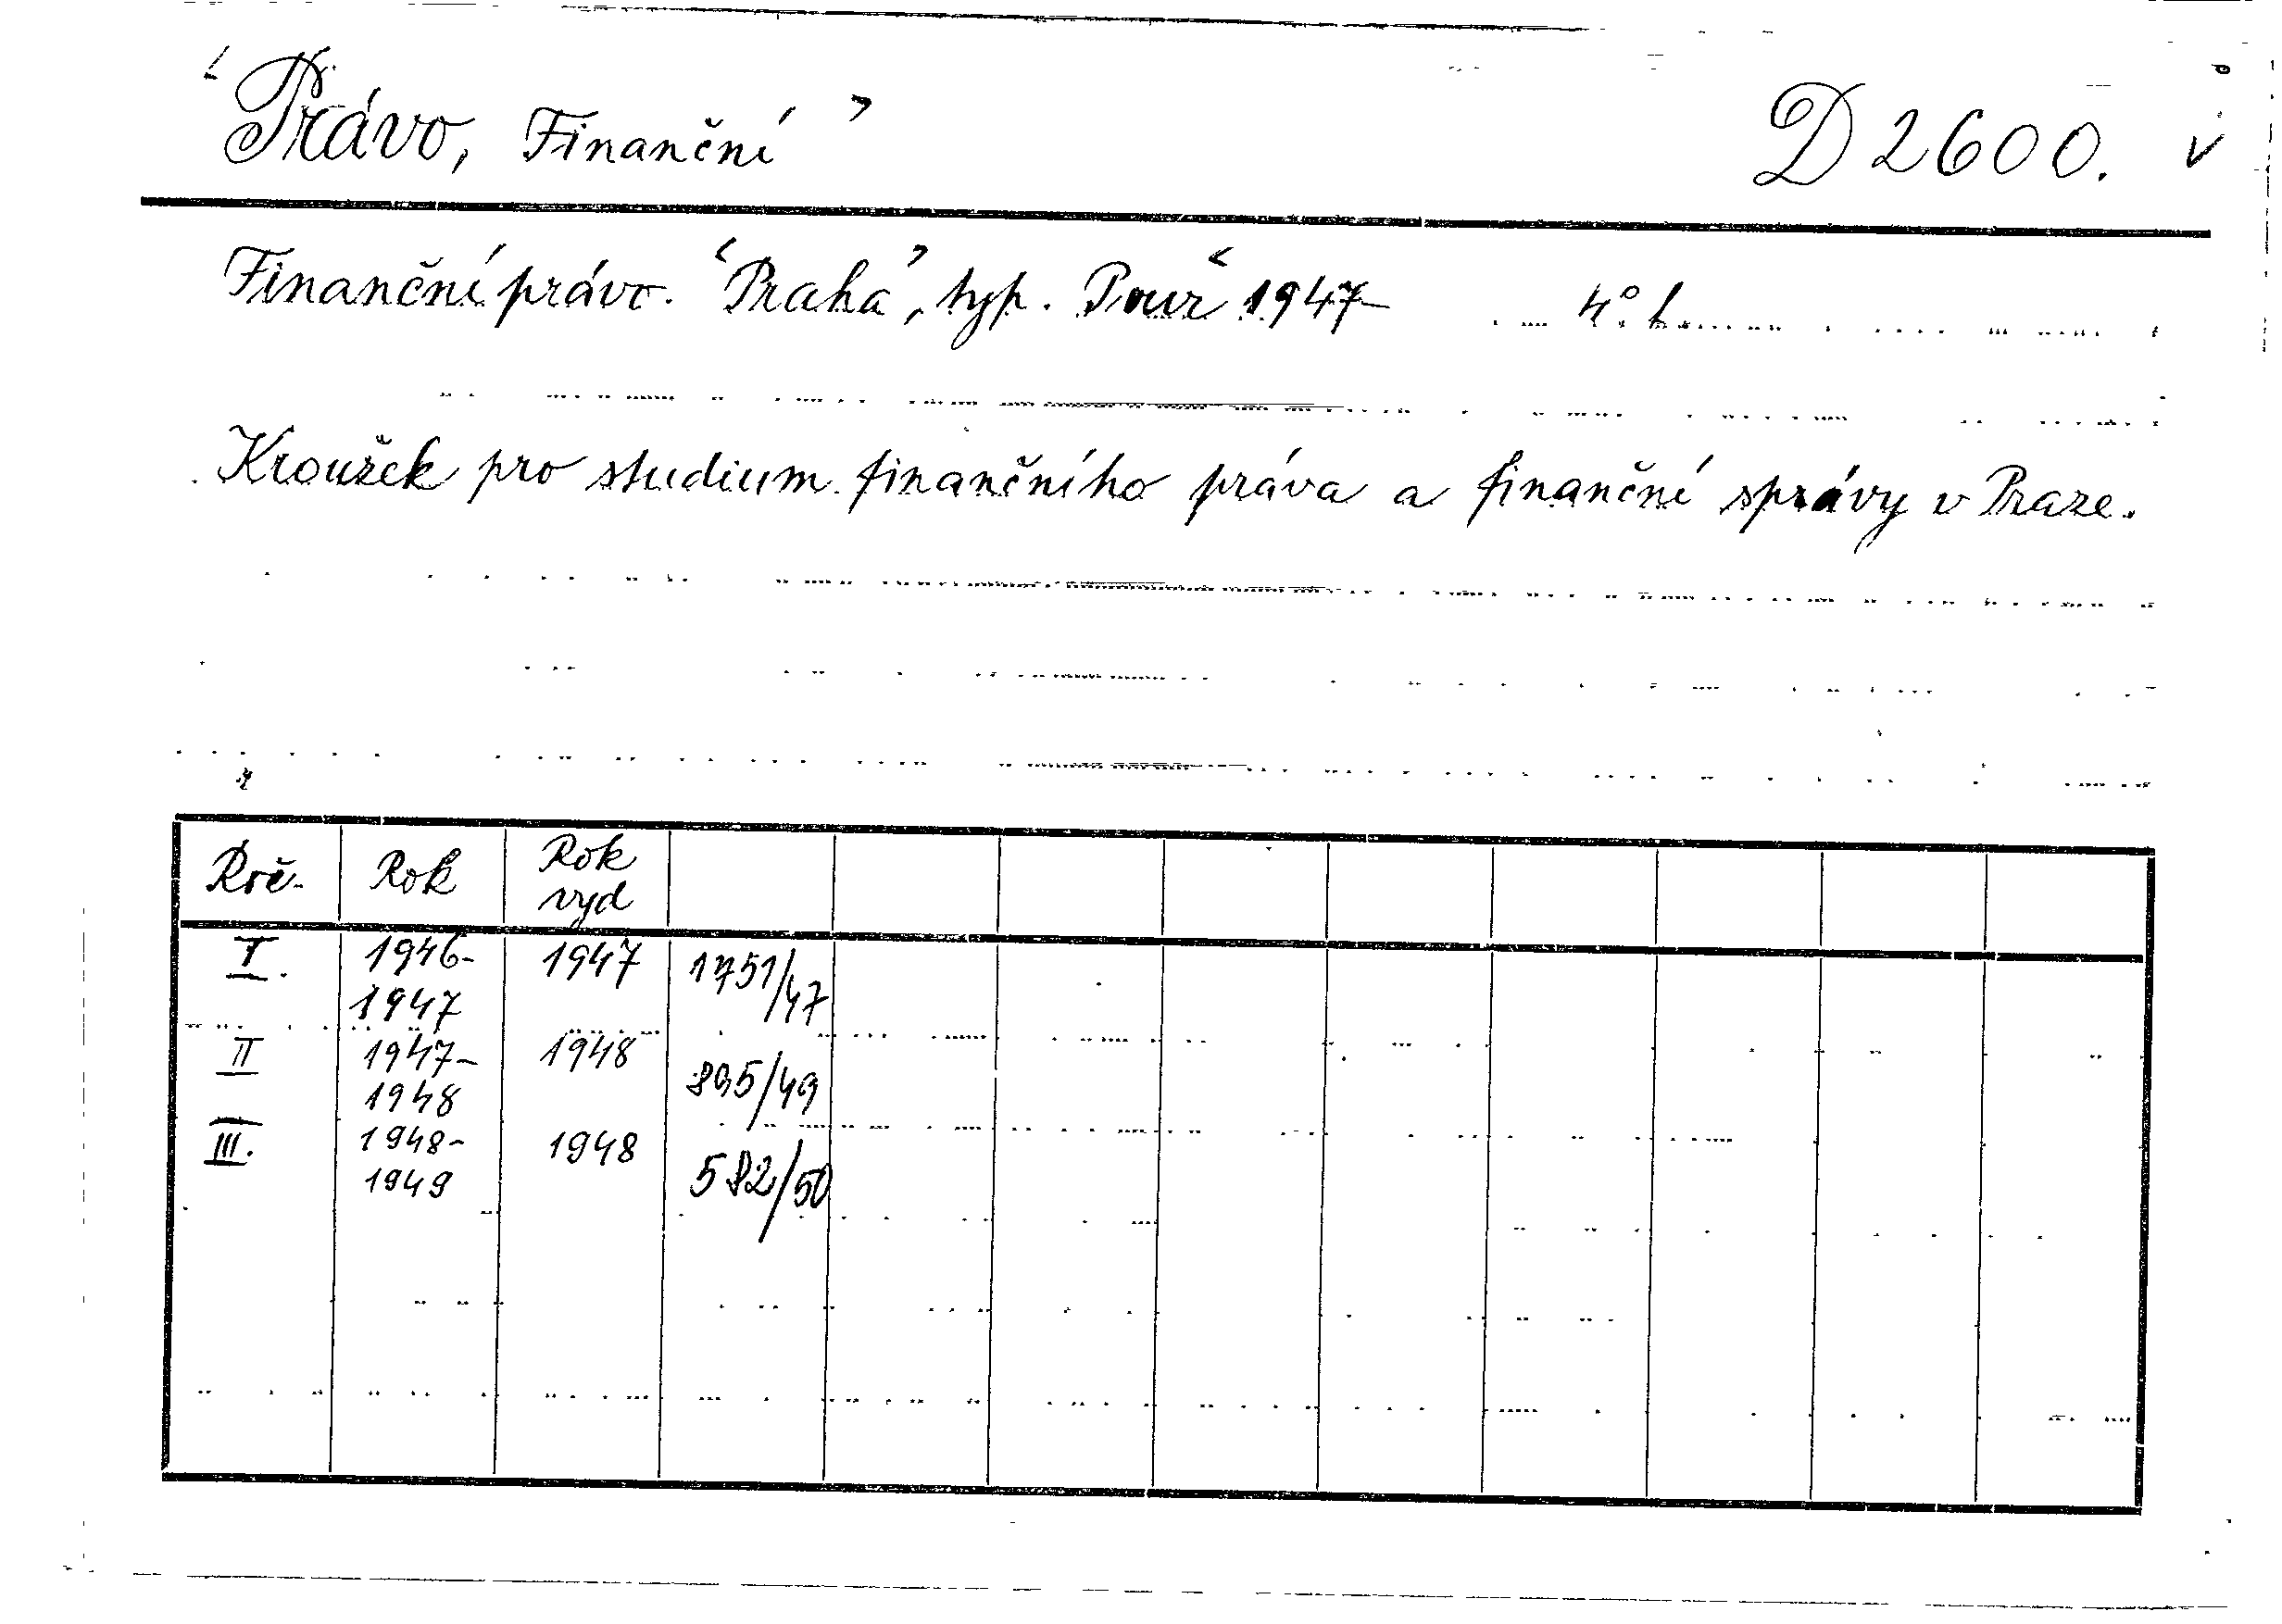 ‹Právo, Finanční› D 2600. v
Finanční právo. ‹Praha›, typ. Pour‹ 1947– 4°.
Kroužek pro studium finančního práva a finanční správy v Praze.
Roč. Rok Rok vyd
I. 1946-1947 1947 1751/47
II 1947-1948 1948 895/49
III. 1948-1949 1948 582/50